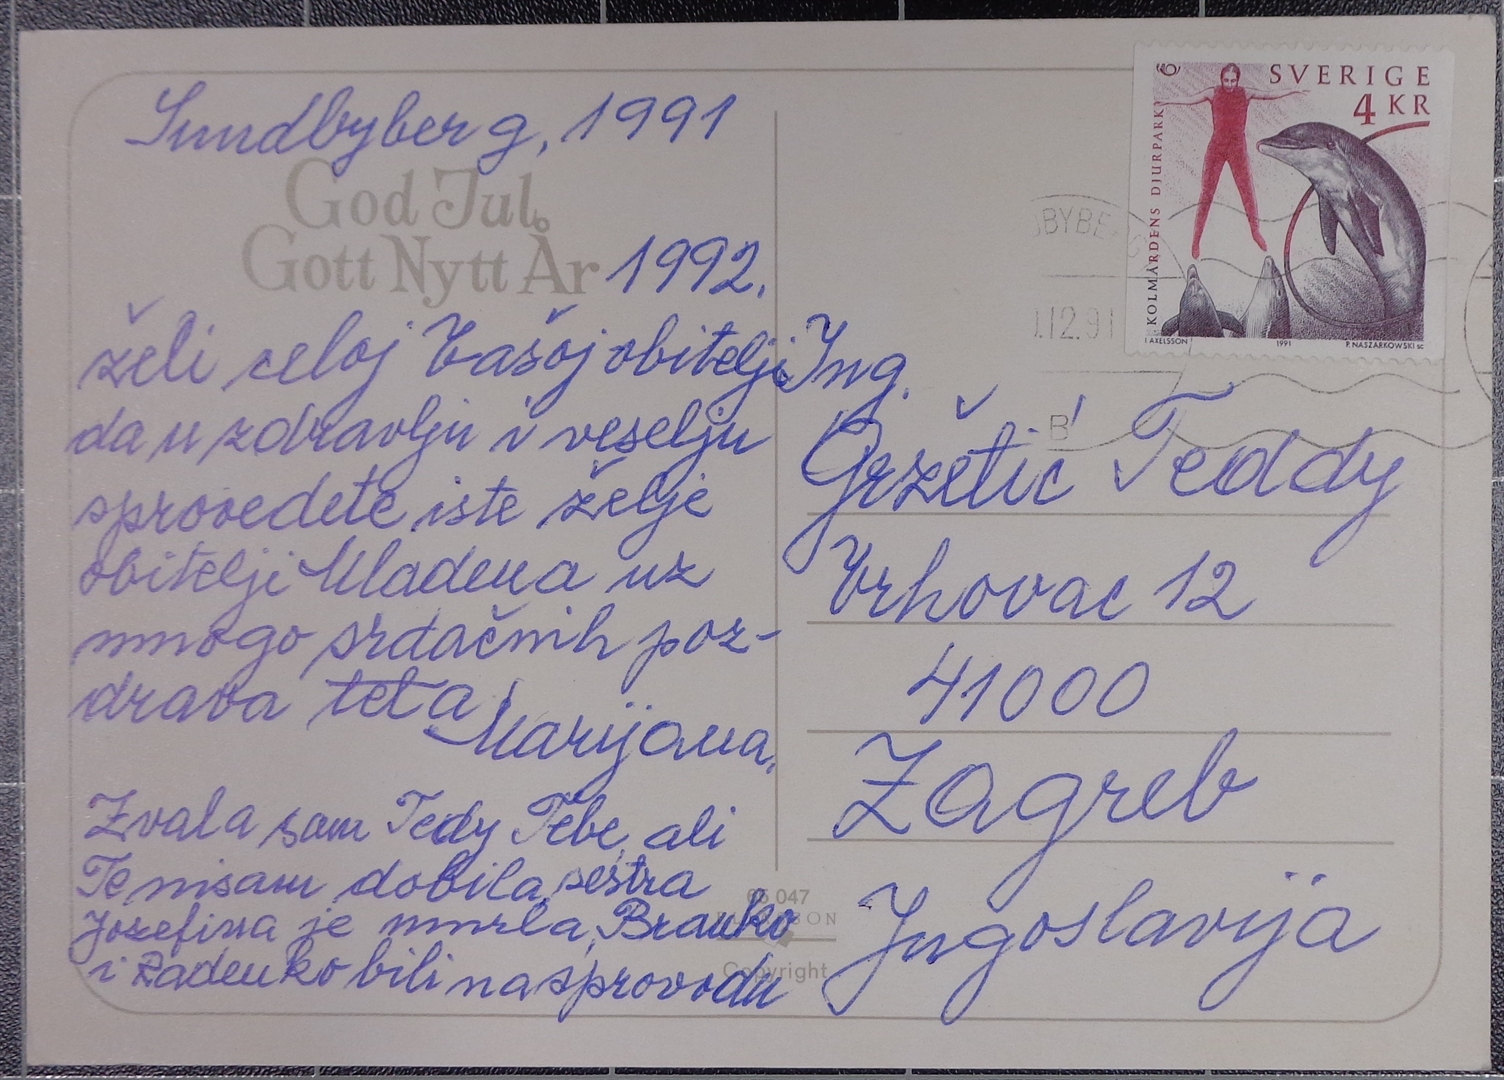 Sundbyberg, 1991
God Jul
Gott Nytt År 1992.
želi celoj Vašoj obitelji
da u zdravlju i veselju
sprovedete iste želje
obitelji Mladena uz
mnogo srdačnih poz-
drava teta
Marijana.
Zvala sam Tedy Tebe, ali
Te nisam dobila, sestra
Jozefina je umrla, Branko
i Radenko bili na sprovodu
65 047
Copyright
SVERIGE
4 KR
KOLMÅRDENS DJURPARK
I AXELSSON 1991 P. NASZARKOWSKI sc
DBYBE
.12.91
B
Ing.
Gržetić Teddy
Vrhovac 12
41000
Zagreb
Jugoslavija